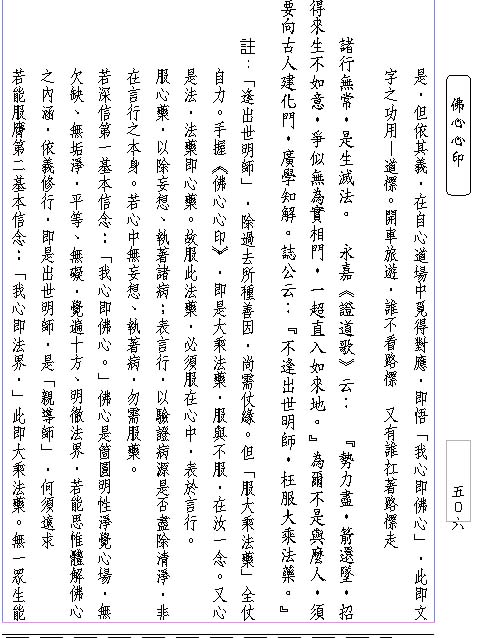 佛心心印
五０六
是，但依其義，在自心道場中覓得對應，即悟「我心即佛心」，此即文
字之功用—道標。開車旅遊，誰不看路標　又有誰扛著路標走
諸行無常，是生滅法。　永嘉《證道歌》云：　『勢力盡，箭還墜，招
得來生不如意，爭似無為實相門，一超直入如來地。』為爾不是與麼人，須
要向古人建化門，廣學知解。誌公云：『不逢出世明師，枉服大乘法藥。』
註：「逢出世明師」，除過去所種善因，尚需仗緣。但「服大乘法藥」全仗
自力。手握《佛心心印》，即是大乘法藥，服與不服，在汝一念。又心
是法，法藥即心藥。故服此法藥，必須服在心中，表於言行。
服心藥，以除妄想、執著諸病；表言行，以驗證病源是否盡除清淨，非
在言行之本身。若心中無妄想、執著病，勿需服藥。
若深信第一基本信念：「我心即佛心。」佛心是箇圓明性淨覺心場，無
欠缺、無垢淨，平等、無礙，覺遍十方、明徹法界，若能思惟體解佛心
之內涵，依義修行，即是出世明師，是「親導師」，何須遠求
若能服膺第二基本信念：「我心即法界，」此即大乘法藥。無一眾生能